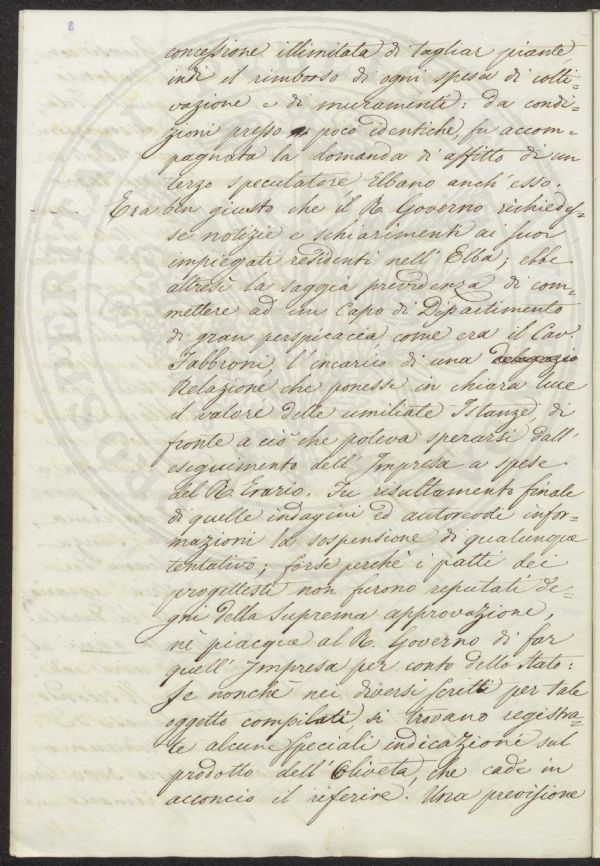 concessione illimitata di tagliar piante,
indi il rimborso di ogni spesa di colti-
vazione e di muramenti: da condi-
zioni presso a poco identiche, fu accom-
pagnata la domanda di affitto di un
terzo speculatore Elbano anch' esso.
Era ben giusto che il R. Governo richiedes-
se notizie e schiarimenti ai suoi
impiegati residenti nell' Elba; ebbe
altresì la saggia previdenza di com-
mettere ad un Capo di Dipartimento
di gran perspicacia come era il Cav.
Fabbroni, l' incarico di una delegazio
Relazione che ponesse in chiara luce
il valore delle umiliate Istanze, di
fronte a ciò che poteva sperarsi dall'
eseguimento dell' Impresa a spese
del R. Erario. Fu risultamento finale
di quelle indagini ed autorevoli infor-
mazioni la sospensione di qualunque
tentativo; forse perchè i patti dei
progettisti non furono reputati de-
gni della Suprema approvazione,
nè piacque al R. Governo di far
quell' Impresa per conto dello Stato:
Se nonchè nei diversi scritti per tale
oggetto compilati, si trovano registra-
te alcune speciali indicazioni sul
prodotto dell' Oliveta, che cade in
acconcio il riferire. Una previsione